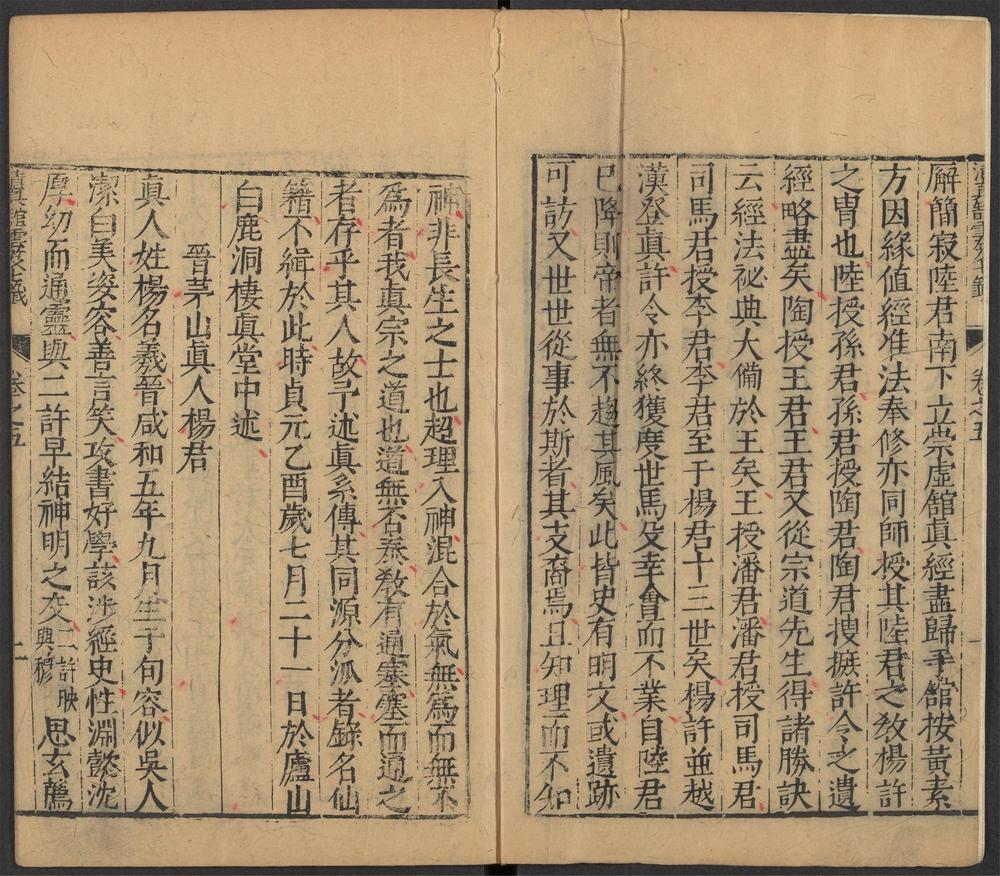 清真館雲笈七籤 卷之五 一
厩簡寂陸君南下立崇虛館眞經盡歸于館按黃素
方因緣值經准法奉修亦同師授其陸君之敎楊許
之冑也陸授孫君孫君授陶君陶君搜摭許令之遺
經略盡矣陶授王君王君又從宗道先生得諸勝訣
云經法祕典大備於王矣王授潘君潘君授司馬君
司馬君授李君李君至于楊君十三世矣楊許並越
漢登眞許令亦終獲度世馬殳幸會而不業自陸君
已降則帝者無不趨其風矣此皆史有明文或遺跡
可訪又世世從事於斯者其支裔焉且知理而不知
神非長生之士也超理入神混合於氣無爲而無不
爲者我眞宗之道也道無否泰敎有通塞塞而通之
者存乎其人故予述眞系傳其同源分泒者錄名仙
籍不緝於此時貞元乙酉歲七月二十一日於廬山
白鹿洞棲眞堂中述
晉茅山眞人楊君
眞人姓楊名羲晉咸和五年九月生于句容似吳人
潔白美姿容善言笑攻書好學該涉經史性淵懿沈
厚幼而通靈與二許早結神明之交二許映與穆思玄薦
清眞館雲笈七籤 卷之五 二